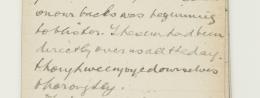 on our backs was beginning
to blister. The sun had been
directly over us all the day.
though we enjoyed ourselves
thoroughly.